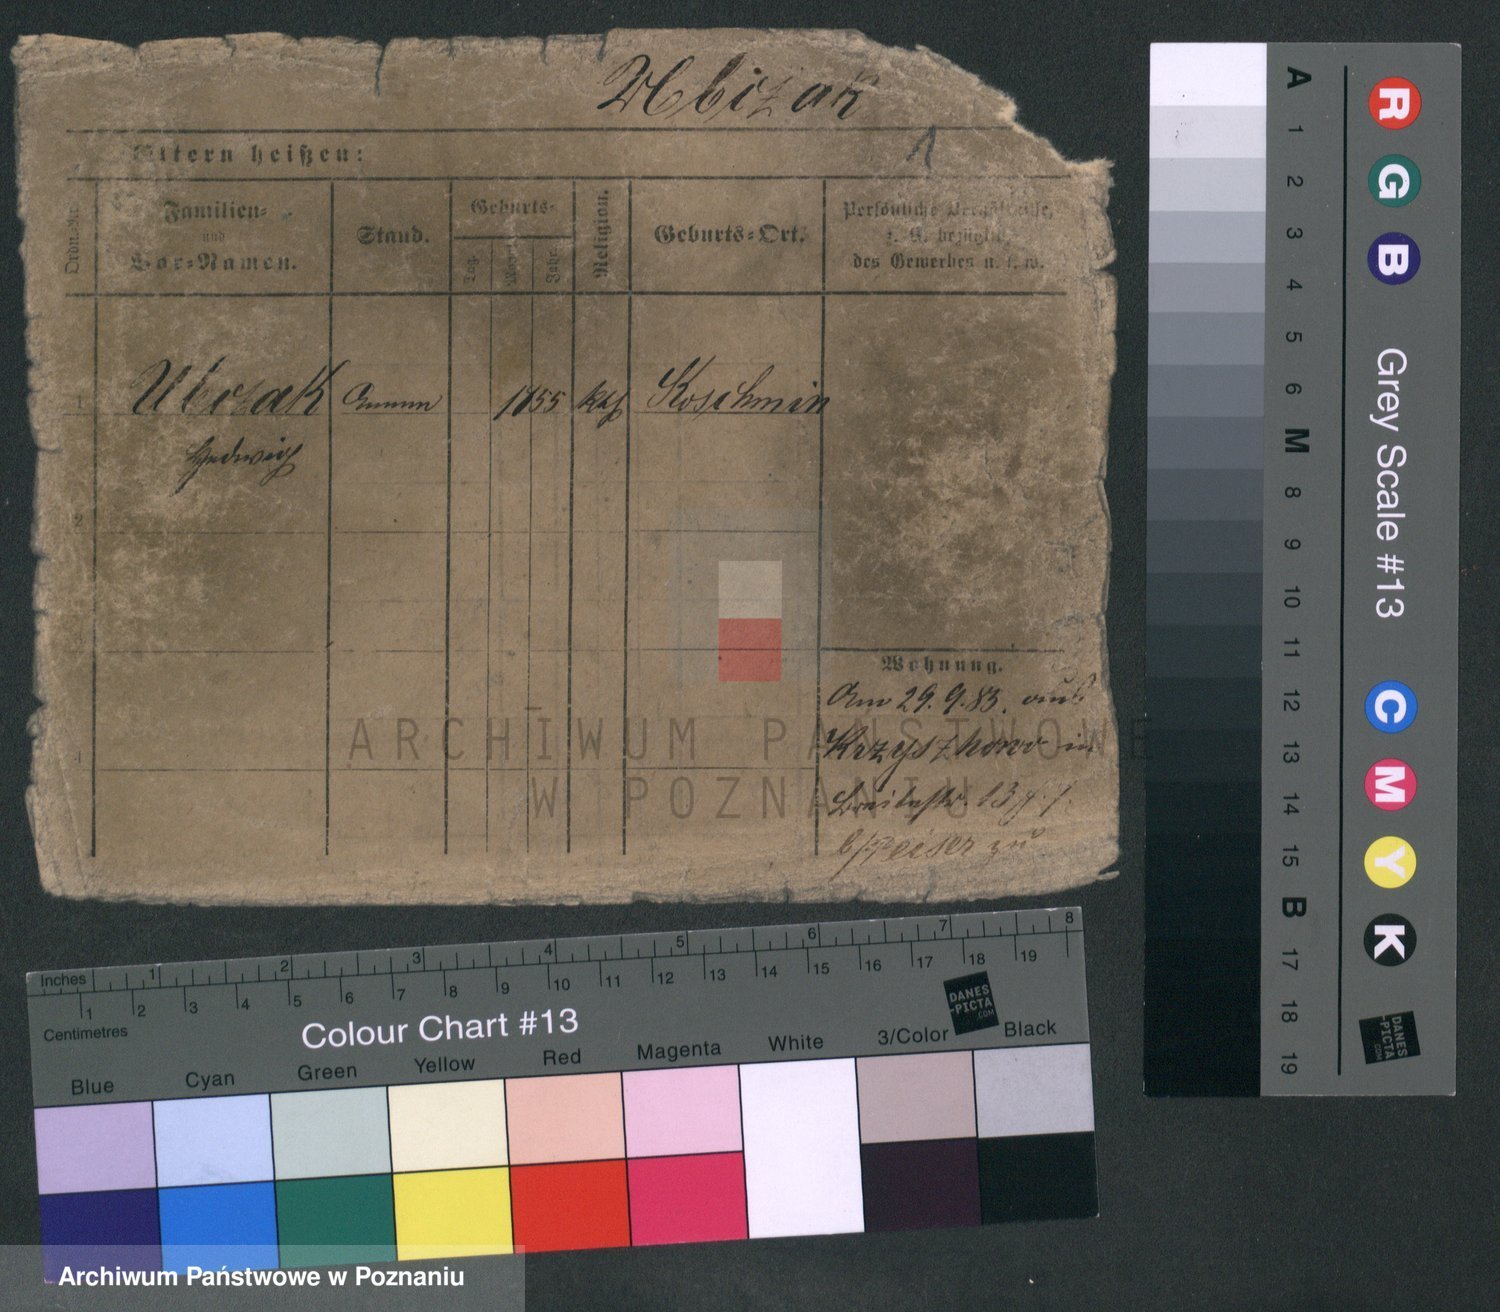 Ubizak
1
Eltern heißen:
Ordn.-Nr.
Familien-
und
Vor-Namen.
Stand.
Geburts-
Tag.
Monat
Jahr.
Religion.
Geburts-Ort.
Persönliche Verhältnisse,
z. B. bezüglich
des Gewerbes u. s. w.
1
Ubizak
Hedwig
Amme
1855
kath
Koschmin
2
3
4
Wohnung.
Am 29. 9. 83. aus
Krzyszkowo in
Breitestr. 13
zu
ARCHIWUM PAŃSTWOWE
W POZNANIU
A 1 2 3 4 5 6 M 8 9 10 11 12 13 14 15 B 17 18 19
R G B
Grey Scale #13
C M Y K
DANES
-PICTA
.COM
Inches 1 2 3 4 5 6 7 8
1 2 3 4 5 6 7 8 9 10 11 12 13 14 15 16 17 18 19
Centimetres
Colour Chart #13
DANES
-PICTA
.COM
Blue Cyan Green Yellow Red Magenta White 3/Color Black
Archiwum Państwowe w Poznaniu